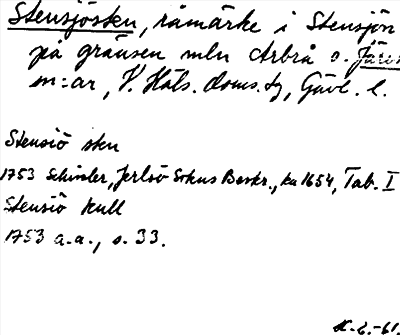 Stensjösken, råmärke i Stensjön
på gränsen mln Arbrå o. Järvs
sn:ar, V. Häls. doms. tg, Gävl. l.
Stensiö skn
1753 Schissler, Jerfsö Sokns Beskr., ka 1654, Tab. I
Stensiö kull
1753 a.a., s. 33.